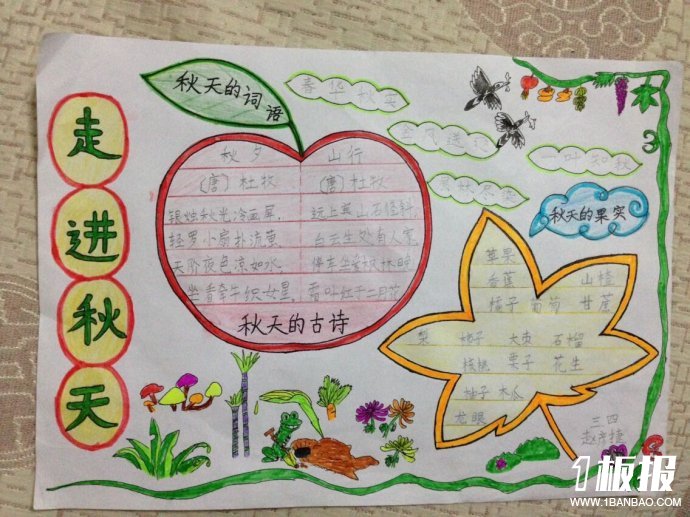 走进秋天
秋天的词语
春华秋实
金风送爽
一叶知秋
秋夕
〔唐〕杜牧
银烛秋光冷画屏,
轻罗小扇扑流萤,
天阶夜色凉如水,
坐看牵牛织女星,
山行
〔唐〕杜牧
远上寒山石径斜,
白云生处有人家,
停车坐爱枫林晚
霜叶红于二月花
秋天的古诗
秋天的果实
苹果
香蕉 山楂
橘子 葡萄 甘蔗
梨 柿子 大枣 石榴
核桃 栗子 花生
柚子 木瓜
龙眼
三四
1板报
WWW.1BANBAO.COM